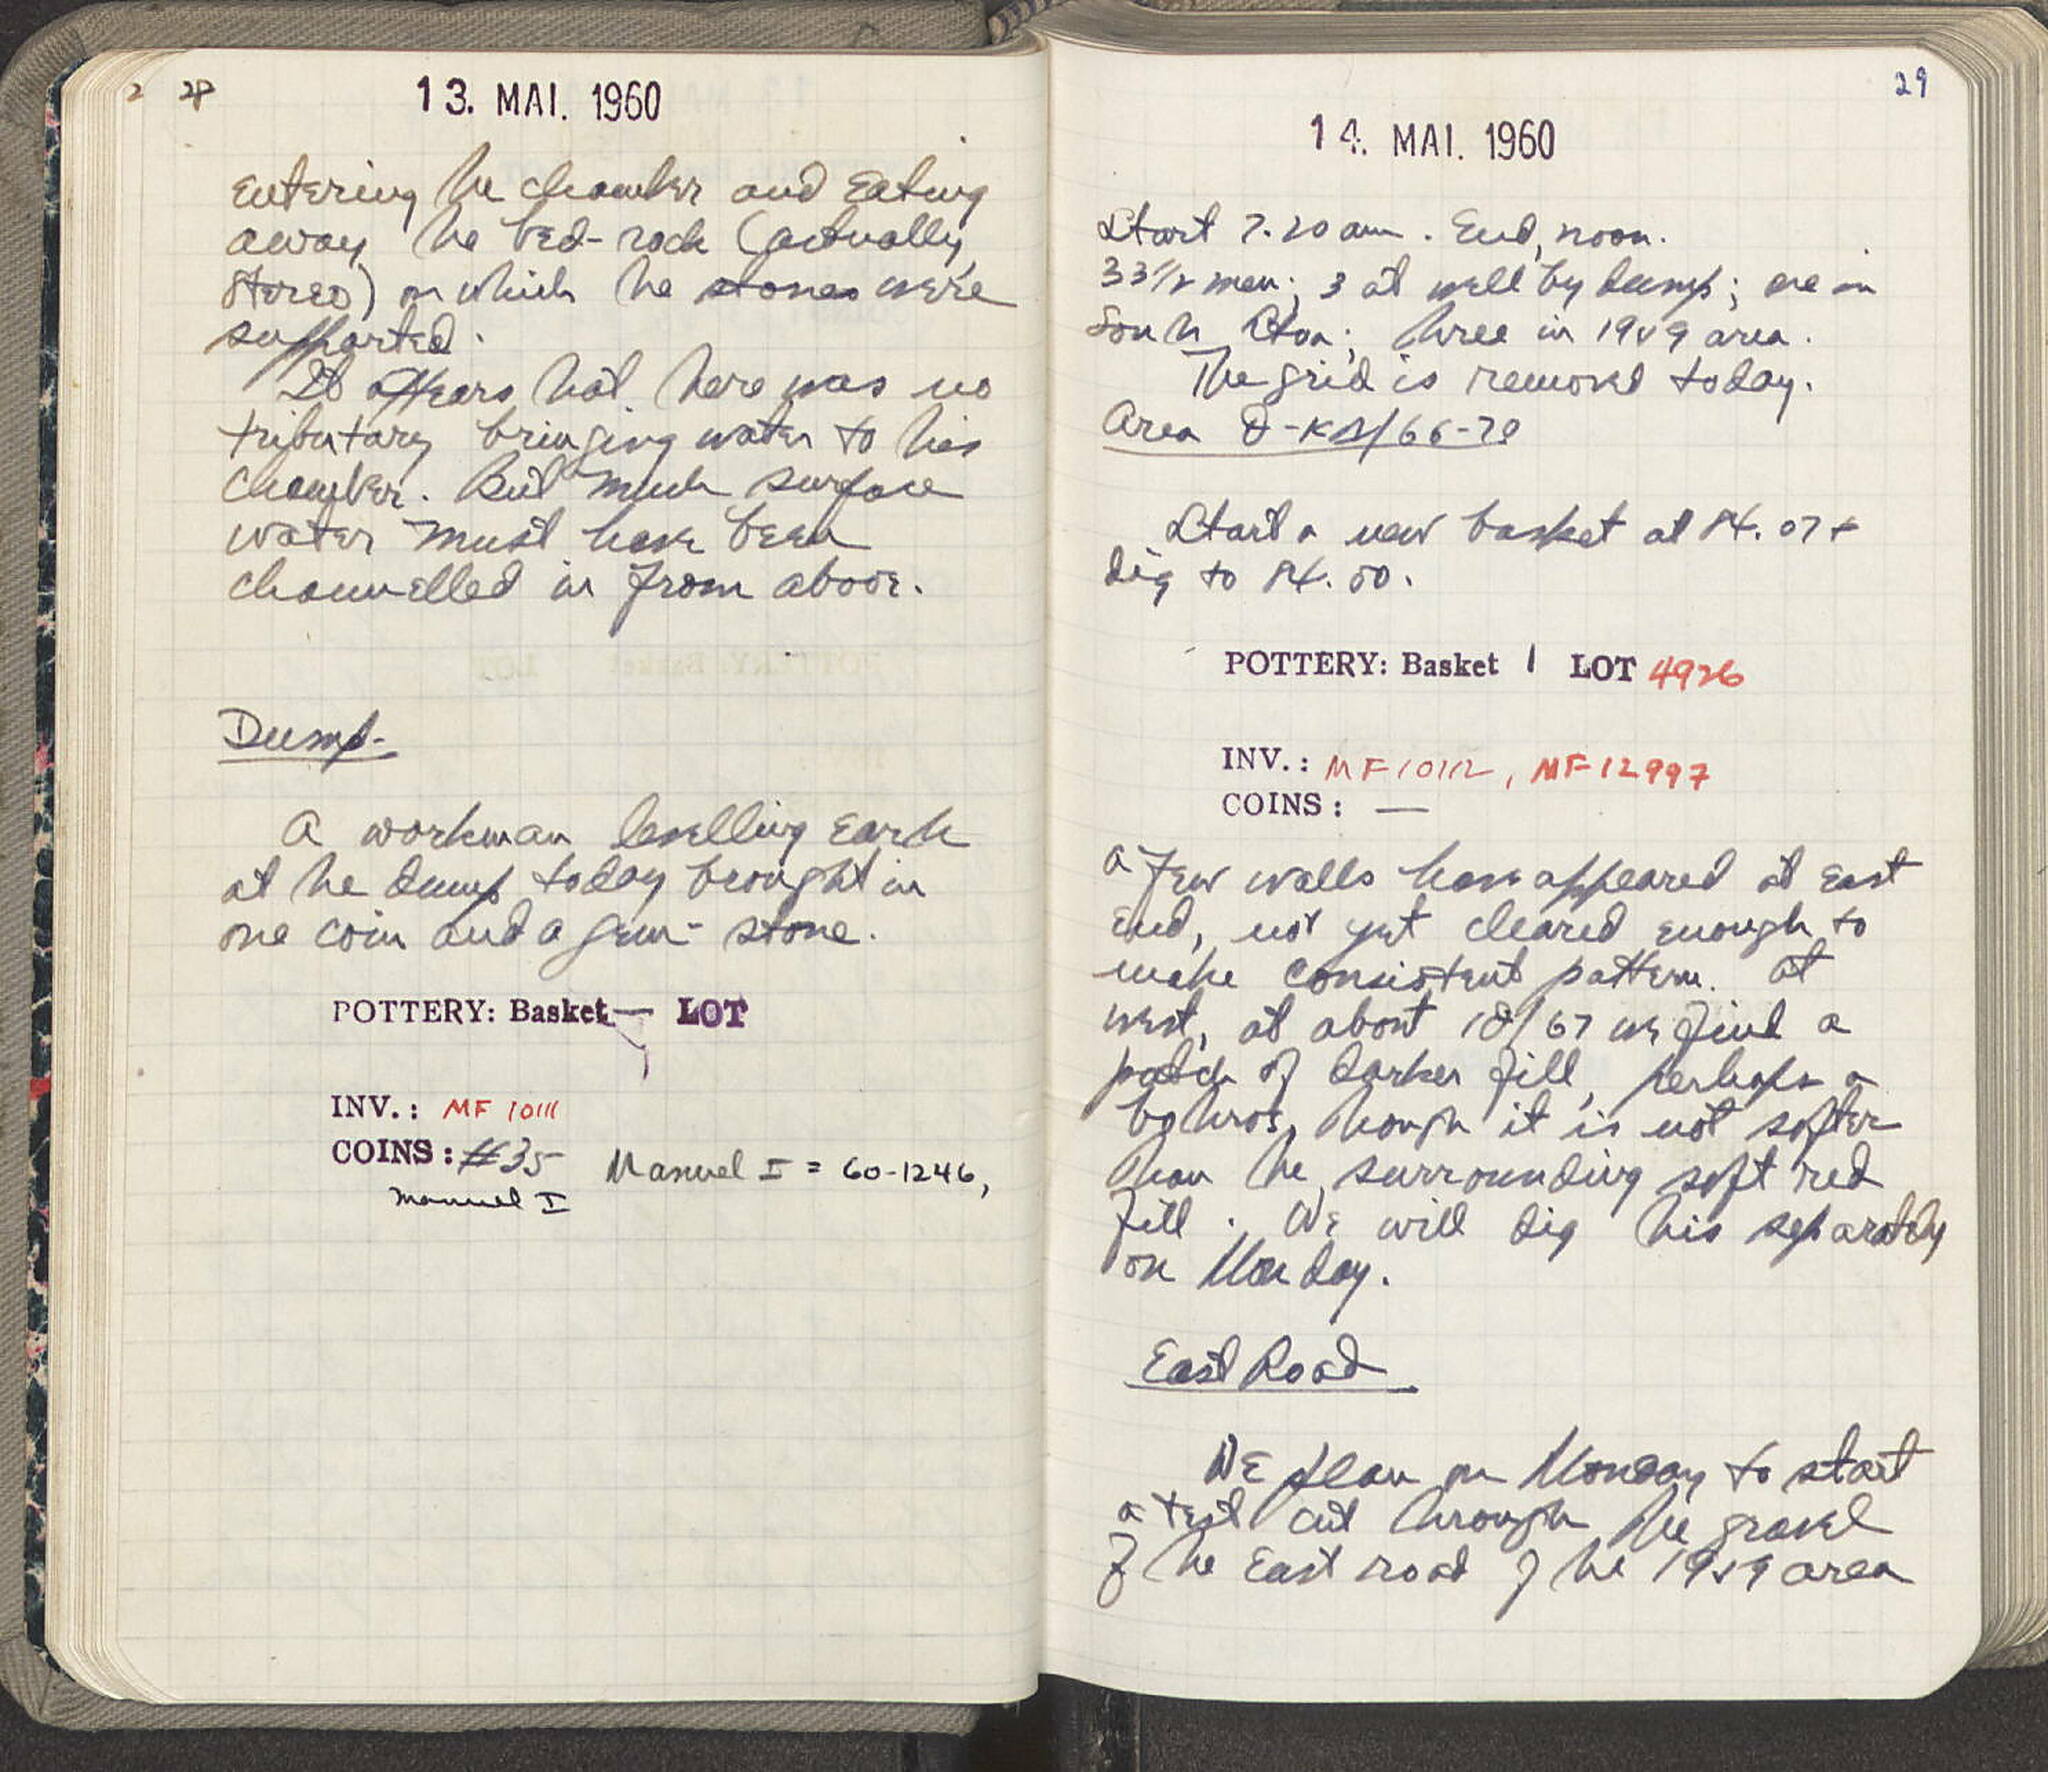 28
13. MAI. 1960
entering the chamber and eating
away the bed-rock (actually
stereo) on which the stones were
supported.
It appears that there was no
tributary bringing water to this
chamber. But much surface
water must have been
channelled in from above.
Dump
A workman levelling earth
at the dump today brought in
one coin and a gem-stone.
POTTERY: Basket — LOT
INV.: MF 10111
COINS: #35 Manuel I = 60-1246,
Manuel I
29
14. MAI. 1960
Start 7.20 am. End, noon.
33 1/2 men; 3 at well by dump; one in
South Stoa; three in 1959 area.
The grid is removed today.
Area
Start a new basket at 84.07 +
dig to 84.00.
POTTERY: Basket 1 LOT 4926
INV.: MF 10112, MF 12997
COINS: —
A few walls have appeared at east
end, not yet cleared enough to
make consistent pattern. At
west, at about we find a
patch of darker fill, perhaps a
bothros, though it is not softer
than the surrounding soft red
fill. We will dig this separately
on Monday.
East Road
We plan on Monday to start
a test cut through the gravel
of the East road of the 1959 area